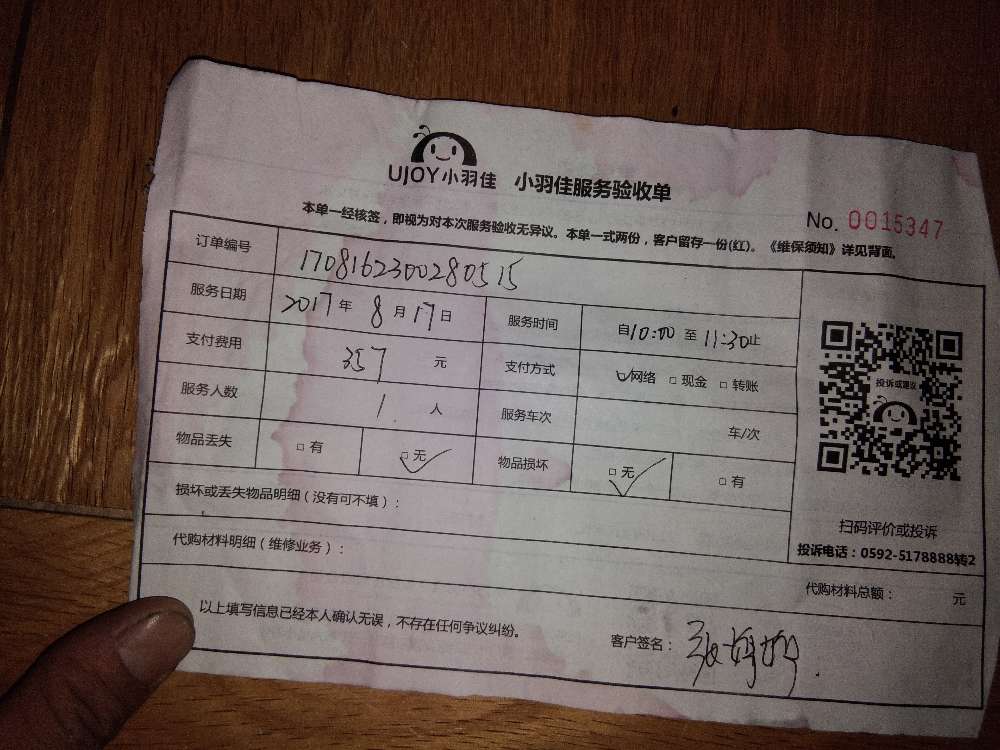 UJOY小羽佳 小羽佳服务验收单
No. 0015347
本单一经核签，即视为对本次服务验收无异议。本单一式两份，客户留存一份(红)。《维保须知》详见背面。
订单编号 1708162300280515
服务日期 2017年 8月17日 服务时间 自10:00 至 11:30止
支付费用 357 元 支付方式 ☑网络 □现金 □转账
服务人数 1 人 服务车次 车/次
物品丢失 □有 ☑无 物品损坏 ☑无 □有
损坏或丢失物品明细（没有可不填）：
代购材料明细（维修业务）：
投诉或建议
扫码评价或投诉
投诉电话：0592-5178888转2
代购材料总额： 元
以上填写信息已经本人确认无误，不存在任何争议纠纷。
客户签名：